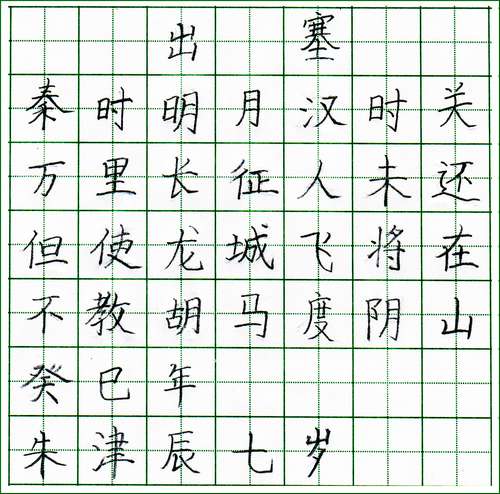 出塞
秦时明月汉时关
万里长征人未还
但使龙城飞将在
不教胡马度阴山
癸巳年
朱津辰七岁